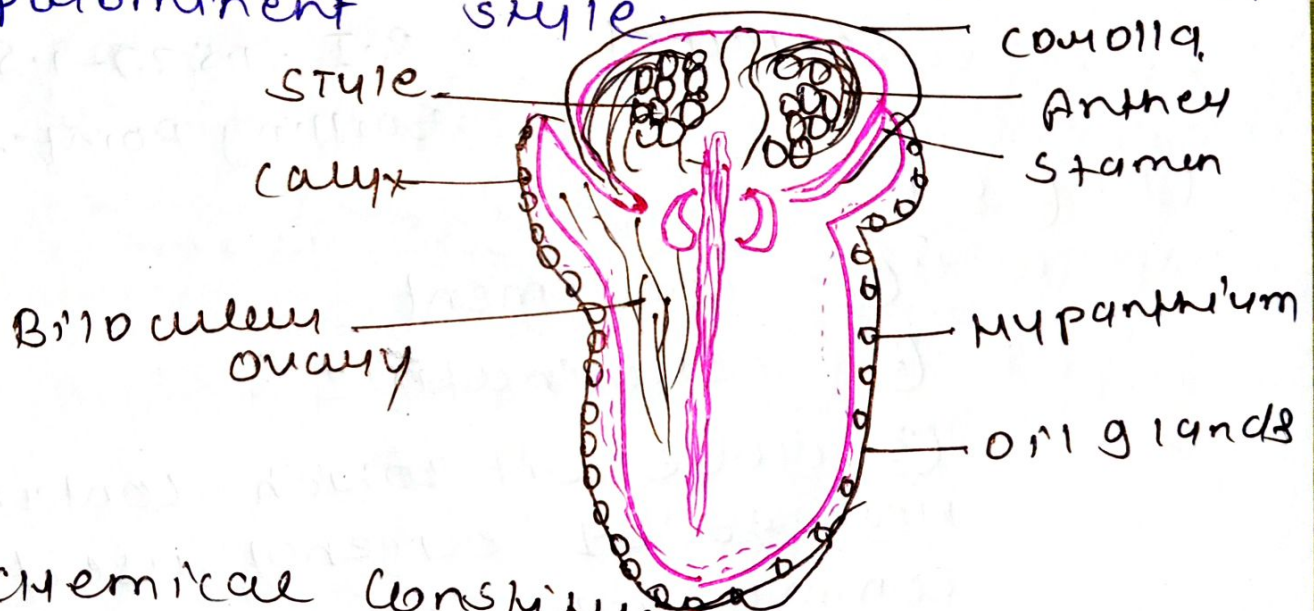 style.
STYLE
Calyx
Bilocular
ovary
Corolla
Anther
Stamen
Hypanthium
Oil glands
Chemical